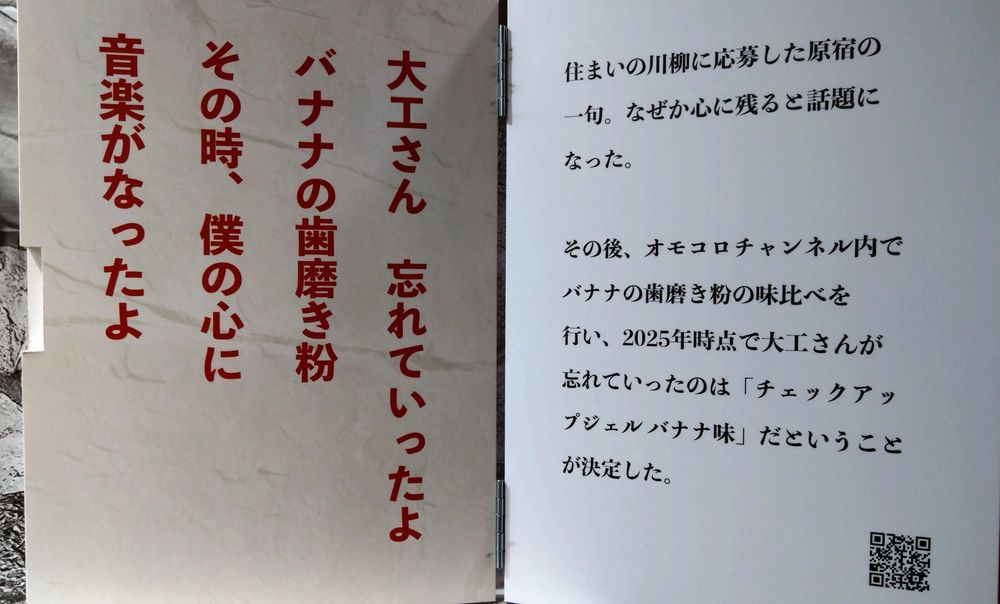 大工さん　忘れていったよ
バナナの歯磨き粉
その時、僕の心に
音楽がなったよ
住まいの川柳に応募した原宿の
一句。なぜか心に残ると話題に
なった。
その後、オモコロチャンネル内で
バナナの歯磨き粉の味比べを
行い、2025年時点で大工さんが
忘れていったのは「チェックアッ
プジェル バナナ味」だということ
が決定した。